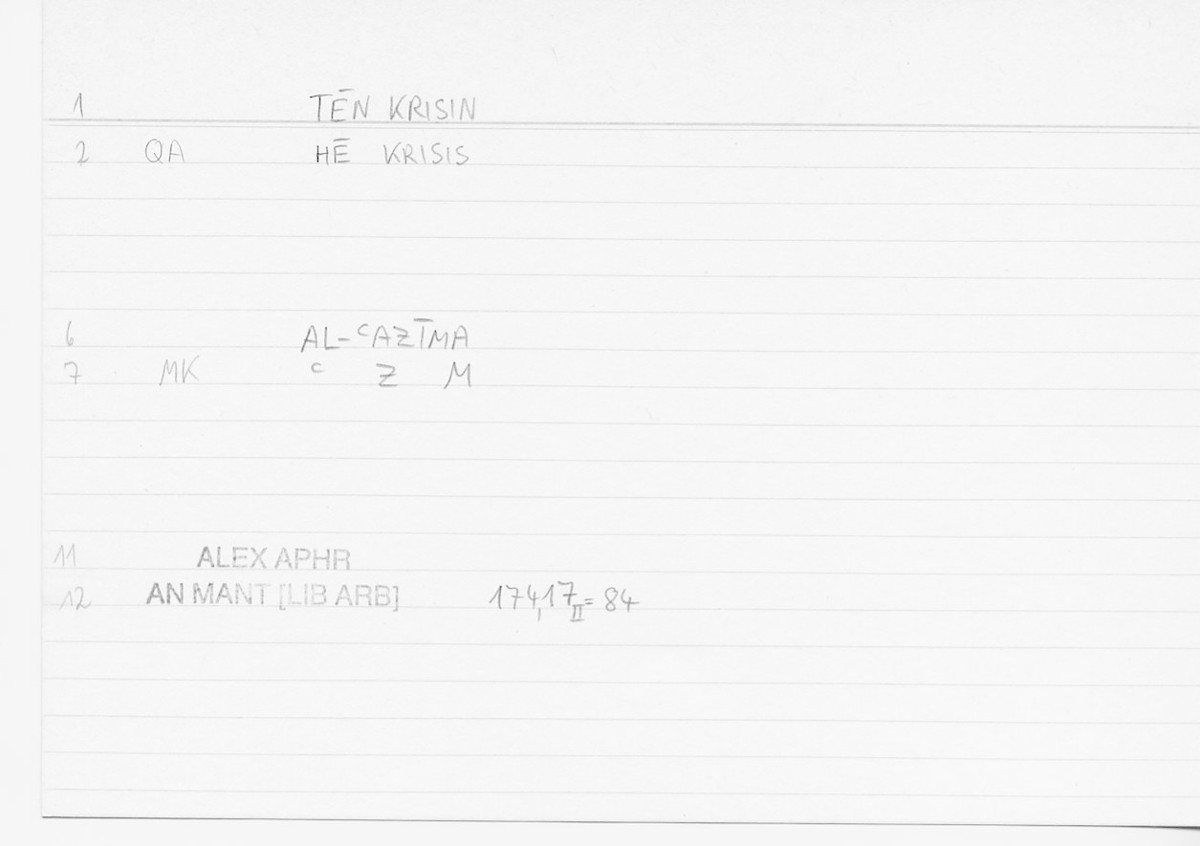 1 TĒN KRISIN
2 QA HĒ KRISIS
6 AL-ʿAZĪMA
7 MK ʿ Z M
11 ALEX APHR
12 AN MANT [LIB ARB] 174,17 II = 84